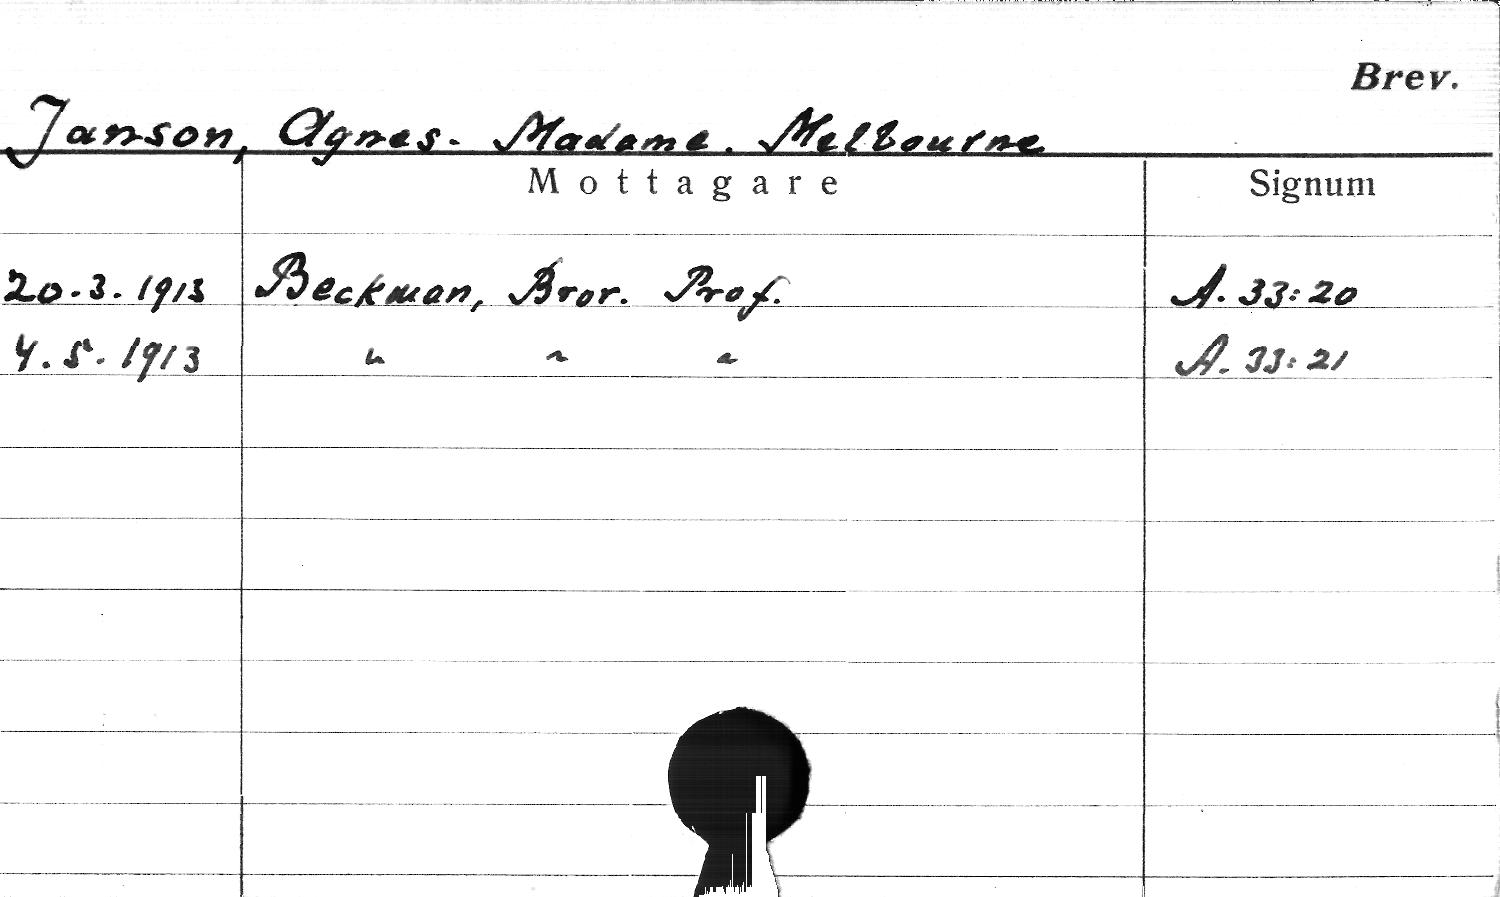 Brev.
Janson, Agnes. Madame. Melbourne
Mottagare Signum
20.3.1913 Beckman, Bror. Prof. A. 33:20
4.5.1913 " " " A. 33:21